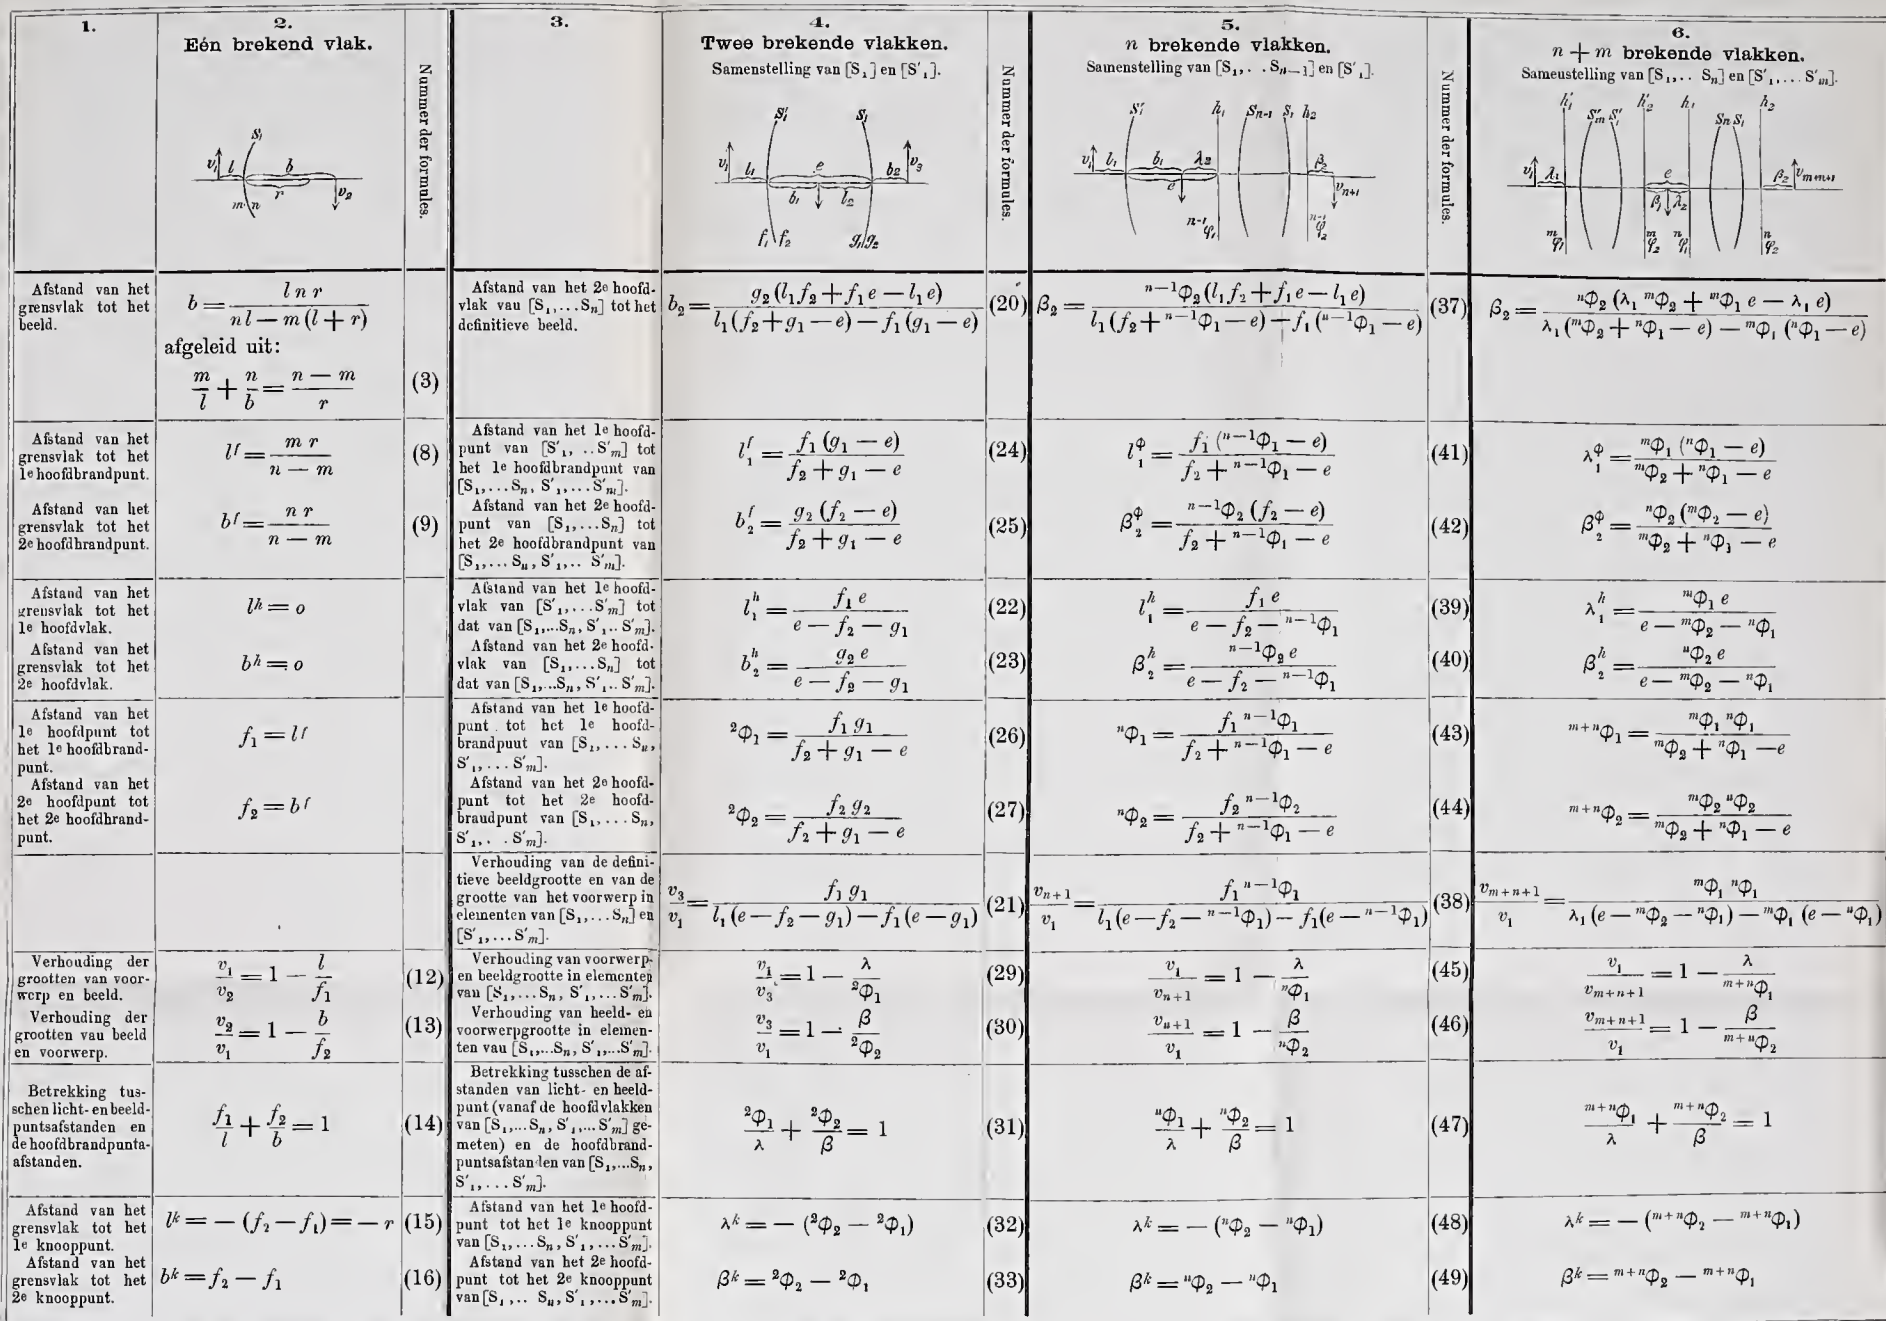 1.
2.
Eén brekend vlak.
Nummer der formules.
3.
4.
Twee brekende vlakken.
Samenstelling van [S₁] en [S′₁].
Nummer der formules.
5.
n brekende vlakken.
Samenstelling van [S₁, . . Sₙ₋₁] en [S′₁].
Nummer der formules.
6.
n + m brekende vlakken.
Sameustelling van [S₁, . . Sₙ] en [S′₁, . . . S′ₘ].
S₁
v₁ l b
r v₂
m n
S′₁ S₁
v₁ l₁ e b₂ v₃
b₁ l₂
f₁ f₂ g₁ g₂
S′₁ h₁ Sₙ₋₁ S₁ h₂
v₁ l₁ b₁ λ₂ β₂
e vₙ₊₁
ⁿ⁻¹φ₁ ⁿ⁻¹φ₂
h′₁ S′ₘ S′₁ h′₂ h₁ Sₙ S₁ h₂
v₁ λ₁ e β₂ vₘ₊ₙ₊₁
β₁ λ₂
ᵐφ₁ ᵐφ₂ ⁿφ₁ ⁿφ₂
Afstand van het
grensvlak tot het
beeld.
b = l n r / (n l — m (l + r))
afgeleid uit:
m/l + n/b = (n — m)/r
(3)
Afstand van het 2e hoofd-
vlak vau [S₁, . . . Sₙ] tot het
definitieve beeld.
b₂ = g₂ (l₁ f₂ + f₁ e — l₁ e) / (l₁ (f₂ + g₁ — e) — f₁ (g₁ — e))
(20)
β₂ = ⁿ⁻¹Φ₂ (l₁ f₂ + f₁ e — l₁ e) / (l₁ (f₂ + ⁿ⁻¹Φ₁ — e) — f₁ (ⁿ⁻¹Φ₁ — e))
(37)
β₂ = ⁿΦ₂ (λ₁ ᵐΦ₂ + ᵐΦ₁ e — λ₁ e) / (λ₁ (ᵐΦ₂ + ⁿΦ₁ — e) — ᵐΦ₁ (ⁿΦ₁ — e))
Afstand van het
grensvlak tot het
1e hoofdbrandpunt.
lᶠ = m r / (n — m)
(8)
Afstand van het 1e hoofd-
punt van [S′₁, . . S′ₘ] tot
het 1e hoofdbrandpunt van
[S₁, . . . Sₙ, S′₁, . . . S′ₘ].
l₁ᶠ = f₁ (g₁ — e) / (f₂ + g₁ — e)
(24)
l₁^Φ = f₁ (ⁿ⁻¹Φ₁ — e) / (f₂ + ⁿ⁻¹Φ₁ — e)
(41)
λ₁^Φ = ᵐΦ₁ (ⁿΦ₁ — e) / (ᵐΦ₂ + ⁿΦ₁ — e)
Afstand van het
grensvlak tot het
2e hoofdbrandpunt.
bᶠ = n r / (n — m)
(9)
Afstand van het 2e hoofd-
punt van [S₁, . . . Sₙ] tot
het 2e hoofdbrandpunt van
[S₁, . . . Sₙ, S′₁, . . S′ₘ].
b₂ᶠ = g₂ (f₂ — e) / (f₂ + g₁ — e)
(25)
β₂^Φ = ⁿ⁻¹Φ₂ (f₂ — e) / (f₂ + ⁿ⁻¹Φ₁ — e)
(42)
β₂^Φ = ⁿΦ₂ (ᵐΦ₂ — e) / (ᵐΦ₂ + ⁿΦ₁ — e)
Afstand van het
grensvlak tot het
1e hoofdvlak.
lʰ = o
Afstand van het 1e hoofd-
vlak van [S′₁, . . . S′ₘ] tot
dat van [S₁, . . . Sₙ, S′₁ . . S′ₘ].
l₁ʰ = f₁ e / (e — f₂ — g₁)
(22)
l₁ʰ = f₁ e / (e — f₂ — ⁿ⁻¹Φ₁)
(39)
λ₁ʰ = ᵐΦ₁ e / (e — ᵐΦ₂ — ⁿΦ₁)
Afstand van het
grensvlak tot het
2e hoofdvlak.
bʰ = o
Afstand van het 2e hoofd-
vlak van [S₁, . . . Sₙ] tot
dat van [S₁, . . . Sₙ, S′₁ . . S′ₘ].
b₂ʰ = g₂ e / (e — f₂ — g₁)
(23)
β₂ʰ = ⁿ⁻¹Φ₂ e / (e — f₂ — ⁿ⁻¹Φ₁)
(40)
β₂ʰ = ⁿΦ₂ e / (e — ᵐΦ₂ — ⁿΦ₁)
Afstand van het
1e hoofdpunt tot
het 1e hoofdbrand-
punt.
f₁ = lᶠ
Afstand van het 1e hoofd-
punt tot het 1e hoofd-
brandpuut van [S₁, . . . Sₙ,
S′₁, . . . S′ₘ].
²Φ₁ = f₁ g₁ / (f₂ + g₁ — e)
(26)
ⁿΦ₁ = f₁ ⁿ⁻¹Φ₁ / (f₂ + ⁿ⁻¹Φ₁ — e)
(43)
ᵐ⁺ⁿΦ₁ = ᵐΦ₁ ⁿΦ₁ / (ᵐΦ₂ + ⁿΦ₁ — e)
Afstand van het
2e hoofdpunt tot
het 2e hoofdhrand-
punt.
f₂ = bᶠ
Afstand van het 2e hoofd-
punt tot het 2e hoofd-
braudpunt van [S₁, . . . Sₙ,
S′₁, . . S′ₘ].
²Φ₂ = f₂ g₂ / (f₂ + g₁ — e)
(27)
ⁿΦ₂ = f₂ ⁿ⁻¹Φ₂ / (f₂ + ⁿ⁻¹Φ₁ — e)
(44)
ᵐ⁺ⁿΦ₂ = ᵐΦ₂ ⁿΦ₂ / (ᵐΦ₂ + ⁿΦ₁ — e)
Verhouding van de defini-
tieve beeldgrootte en van de
grootte van het voorwerp in
elementen van [S₁, . . . Sₙ] en
[S′₁, . . . S′ₘ].
v₃/v₁ = f₁ g₁ / (l₁ (e — f₂ — g₁) — f₁ (e — g₁))
(21)
vₙ₊₁/v₁ = f₁ ⁿ⁻¹Φ₁ / (l₁ (e — f₂ — ⁿ⁻¹Φ₁) — f₁ (e — ⁿ⁻¹Φ₁))
(38)
vₘ₊ₙ₊₁/v₁ = ᵐΦ₁ ⁿΦ₁ / (λ₁ (e — ᵐΦ₂ — ⁿΦ₁) — ᵐΦ₁ (e — ⁿΦ₁))
Verhouding der
grootten van voor-
werp en beeld.
v₁/v₂ = 1 — l/f₁
(12)
Verhouding van voorwerp-
en beeldgrootte in elementen
van [S₁, . . . Sₙ, S′₁, . . . S′ₘ].
v₁/v₃ = 1 — λ/²Φ₁
(29)
v₁/vₙ₊₁ = 1 — λ/ⁿΦ₁
(45)
v₁/vₘ₊ₙ₊₁ = 1 — λ/ᵐ⁺ⁿΦ₁
Verhouding der
grootten vau beeld
en voorwerp.
v₂/v₁ = 1 — b/f₂
(13)
Verhouding van heeld- en
voorwerpgrootte in elemen-
ten vau [S₁, . . . Sₙ, S′₁, . . . S′ₘ].
v₃/v₁ = 1 — β/²Φ₂
(30)
vₙ₊₁/v₁ = 1 — β/ⁿΦ₂
(46)
vₘ₊ₙ₊₁/v₁ = 1 — β/ᵐ⁺ⁿΦ₂
Betrekking tus-
schen licht- en beeld-
puntsafstanden en
de hoofdbrandpunta-
afstanden.
f₁/l + f₂/b = 1
(14)
Betrekking tusschen de af-
standen van licht- en heeld-
punt (vanaf de hoofdvlakken
van [S₁, . . . Sₙ, S′₁, . . . S′ₘ] ge-
meten) en de hoofdbrand-
puntsafstanden van [S₁, . . . Sₙ,
S′₁, . . . S′ₘ].
²Φ₁/λ + ²Φ₂/β = 1
(31)
ⁿΦ₁/λ + ⁿΦ₂/β = 1
(47)
ᵐ⁺ⁿΦ₁/λ + ᵐ⁺ⁿΦ₂/β = 1
Afstand van het
grensvlak tot het
1e knooppunt.
lᵏ = — (f₂ — f₁) = — r
(15)
Afstand van het 1e hoofd-
punt tot het 1e knooppunt
van [S₁, . . . Sₙ, S′₁, . . . S′ₘ].
λᵏ = — (²Φ₂ — ²Φ₁)
(32)
λᵏ = — (ⁿΦ₂ — ⁿΦ₁)
(48)
λᵏ = — (ᵐ⁺ⁿΦ₂ — ᵐ⁺ⁿΦ₁)
Afstand van het
grensvlak tot het
2e knooppunt.
bᵏ = f₂ — f₁
(16)
Afstand van het 2e hoofd-
punt tot het 2e knooppunt
van [S₁, . . Sₙ, S′₁, . . . S′ₘ].
βᵏ = ²Φ₂ — ²Φ₁
(33)
βᵏ = ⁿΦ₂ — ⁿΦ₁
(49)
βᵏ = ᵐ⁺ⁿΦ₂ — ᵐ⁺ⁿΦ₁